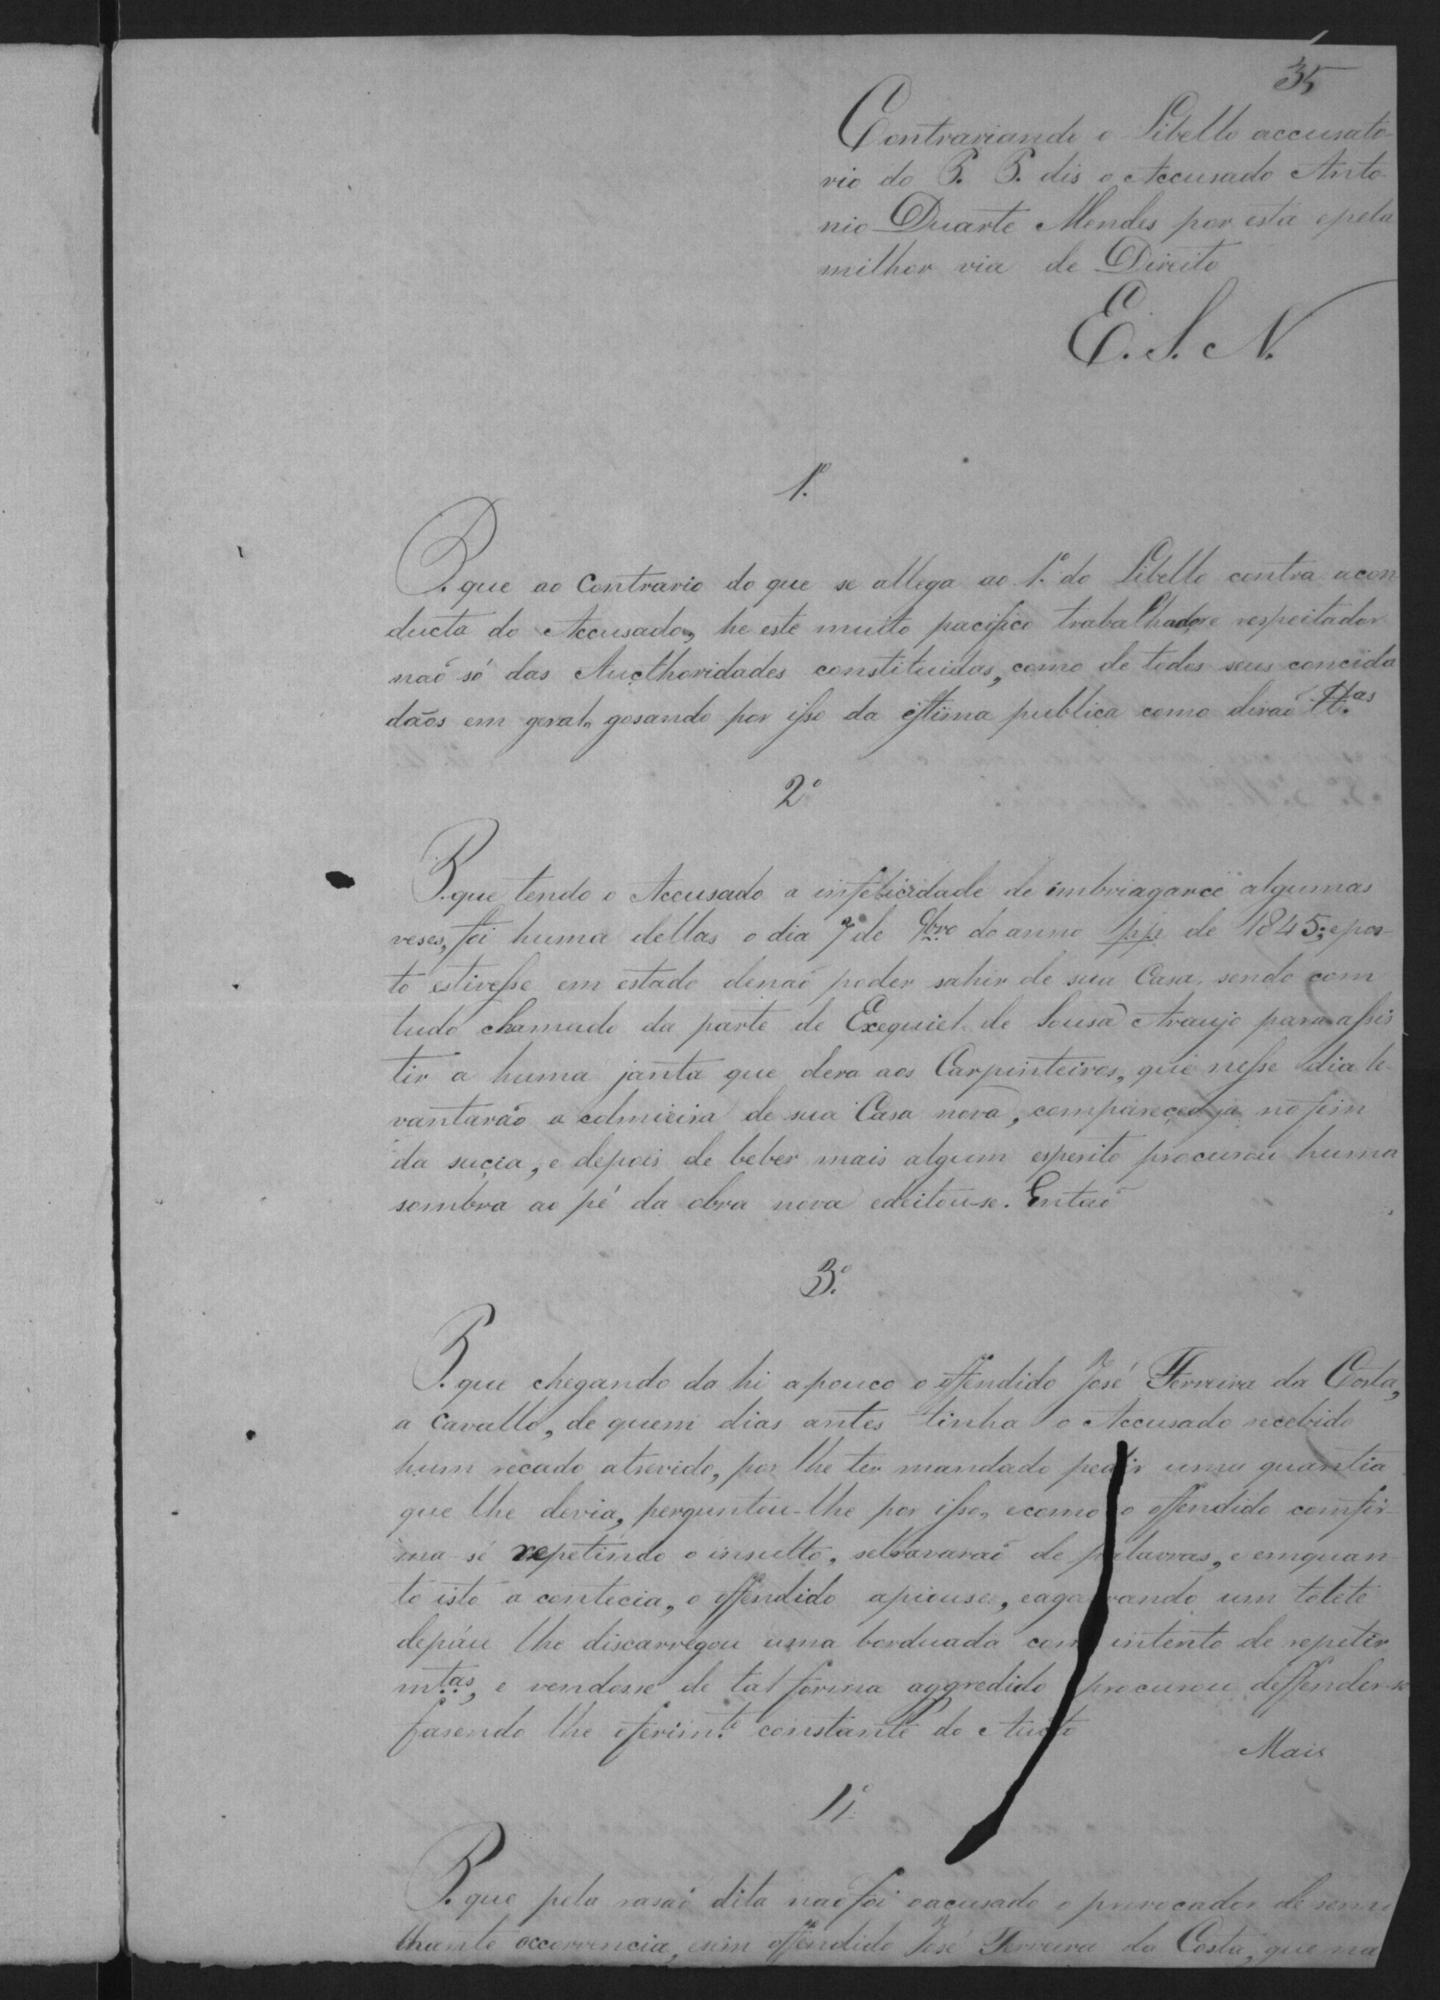 35
Contrariando o Libello accusato-
rio do P. P. dis o Accusado Anto-
nio Duarte Mendes por esta e pela
milhor via de Direito
E. S. N.
1.º
P. que ao contrario do que se allega ao 1.º do Libello contra acon
ducta do Accusado, he este muito pacifico trabalhador e respeitador
naõ só das Aucthoridades constituidas, como de todos seus concida
dãos em geral, gosando por isso da estima publica como diraõ tt.as
2º
P. que tendo o Accusado a infelicidade de imbriagarce algumas
veses, foi huma dellas o dia 7 de 9bro do anno pp. de 1845; e pos-
to estivesse em estado denaõ poder sahir de sua Casa, sendo com
tudo chamado da parte de Exequiel de Sousa Araujo para assis
tir a huma janta que dera aos Carpinteiros, que nesse dia le-
vantarão a cumieira de sua Casa nova, compareceo já no fim
da sucia, e depois de beber mais algum esperito procurou huma
sombra ao pé da obra nova edeitou-se. Entaõ
3.º
P. que chegando da hi apouco o offendido José Ferreira da Costa,
a Cavallo, de quem dias antes tinha o Accusado recebido
hum recado atrevido, por lhe ter mandado pedir uma quantia
que lhe devia, perguntou-lhe por isso, ecomo o offendido comfir-
ma-se repetindo o insulto, setravaraõ de palavras, e emquan-
to isto a contecia, o offendido apiouse, eagarrando um tolete
depáu lhe discarregou uma borduada com intento de repetir
mtas, e vendosse de tal forma aggredido procurou deffender-se
fasendo lhe oferimto constante do Aucto
Mais
4º
P. que pela rasaõ dita naõ foi oacusado o provocador de semi
lhante occorrencia, esim offendido José Ferreira da Costa, que na